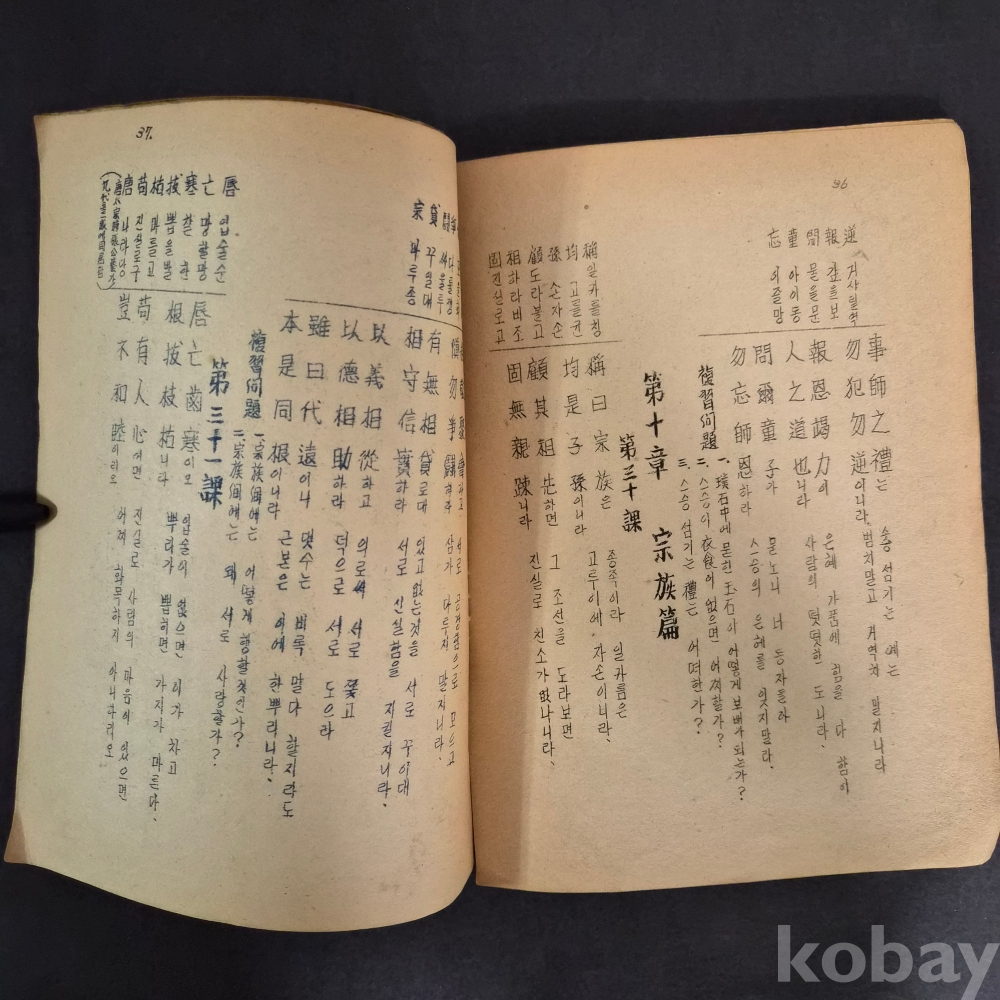 96
逆 거사릴역
報 갚을보
問 물을문
童 아이동
忘 이즐망
事師之禮는 스승 섬기는 예는
勿犯勿逆이니라 범치말고 거역치 말지니라
報恩竭力이 은혜 가품에 힘을 다 함이
人之道也니라 사람의 떳떳한 도니라、
問爾童子가 문노니 너 동자들아
勿忘師恩하라 스승의 은혜를 잊지말라、
複習问題 一、璞石中에 묻힌 玉石이 어떻게 보배가되는가?
二、스승이 衣食에 없으면 어찌할가?
三、스승 섬기는 禮는 어떠한가?
第十章 宗族篇
第三十課
稱 일카를칭
均 고를균
孫 손자손
顧 도라볼고
祖 하라비조
固 진실로고
稱曰宗族은 종족이라 일카름은
均是子孫이니라 고루이에 자손이니라、
顧其祖先하면 그 조선을 도라보면
固無親疎니라 진실로 친소가 없나니라、
37.
鬪 싸울투
貸 꾸일대
宗 마루종
勿爭鬪하라 삼가 다루지 말지니라、
有無相貸로대 있고 없는것을 서로 꾸이대
相守信實하라 서로 신실함을 지킬지니라、
以義相從하고 의로써 서로 쫓고
以德相助하라 덕으로 서로 도으라
雖曰代遠이나 댓수는 비록 말다 할지라도
本是同根이니라 근본은 이에 한뿌리니라、
複習问題 一、宗族间에는 어떻게 행할것인가?
二、宗族间에는 왜 서로 사랑할가?
第三十一課
脣 입술순
亡 망할망
寒 찰한
拔 뽑을발
枯 마를고
苟 진실로구
唐 나라당
脣亡齒寒이오 입술이 없으면 이가 차고
根拔枝枯니라 뿌리가 뽑히면 가지가 마른다、
苟有人心이면 진실로 사람의 마음이 있으면
豈不和睦이리오 어찌 화목하지 아니하리오